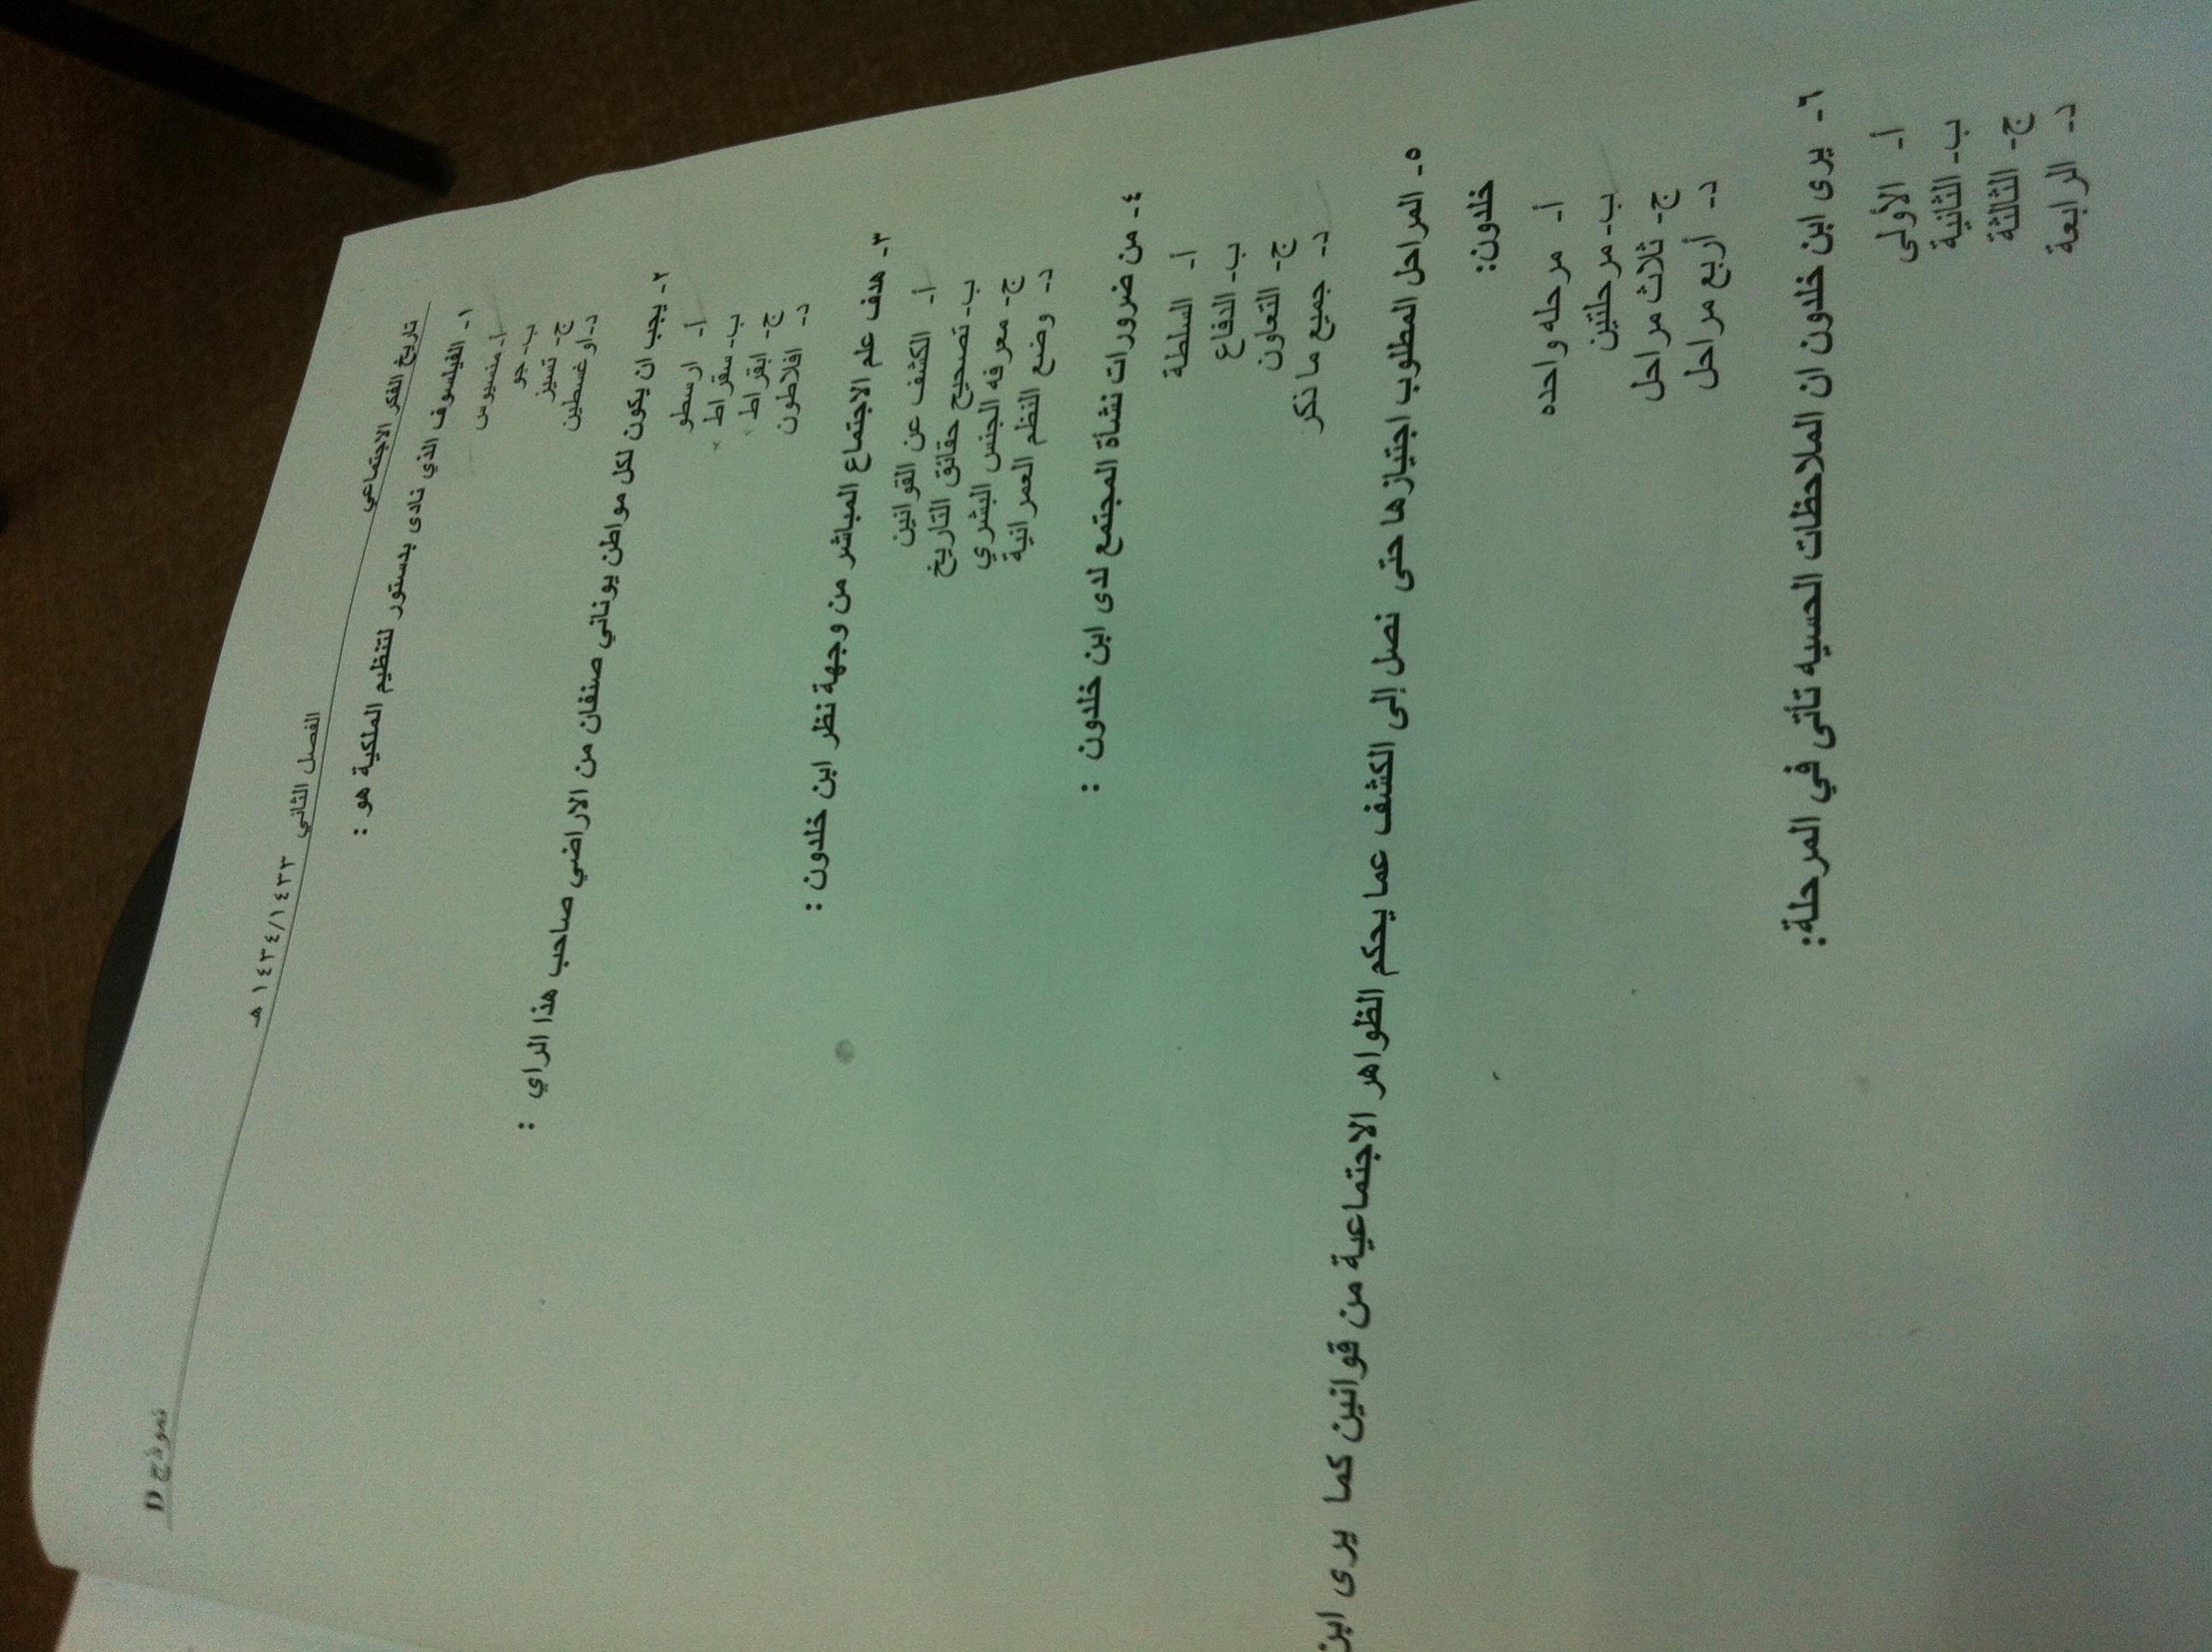 تاريخ الفكر الاجتماعي الفصل الثاني ١٤٣٤/١٤٣٣ هـ نموذج D
١- الفيلسوف الذي نادى بدستور لتنظيم الملكية هو :
أ- منسيوس
ب- جو
ج- تسيز
د- اوغسطين
٢- يجب ان يكون لكل مواطن يوناني صنفان من الاراضي صاحب هذا الراي :
أ- ارسطو
ب- سقراط
ج- ابقراط
د- افلاطون
٣- هدف علم الاجتماع المباشر من وجهة نظر ابن خلدون :
أ- الكشف عن القوانين
ب- تصحيح حقائق التاريخ
ج- معرفه الجنس البشري
د- وضع النظم العمرانية
٤- من ضرورات نشأة المجتمع لدى ابن خلدون :
أ- السلطة
ب- الدفاع
ج- التعاون
د- جميع ما ذكر
٥- المراحل المطلوب اجتيازها حتى نصل إلى الكشف عما يحكم الظواهر الاجتماعية من قوانين كما يرى ابن
خلدون:
أ- مرحله واحده
ب- مرحلتين
ج- ثلاث مراحل
د- أربع مراحل
٦- يرى ابن خلدون ان الملاحظات الحسيه تأتى في المرحلة:
أ- الأولى
ب- الثانية
ج- الثالثة
د- الرابعة